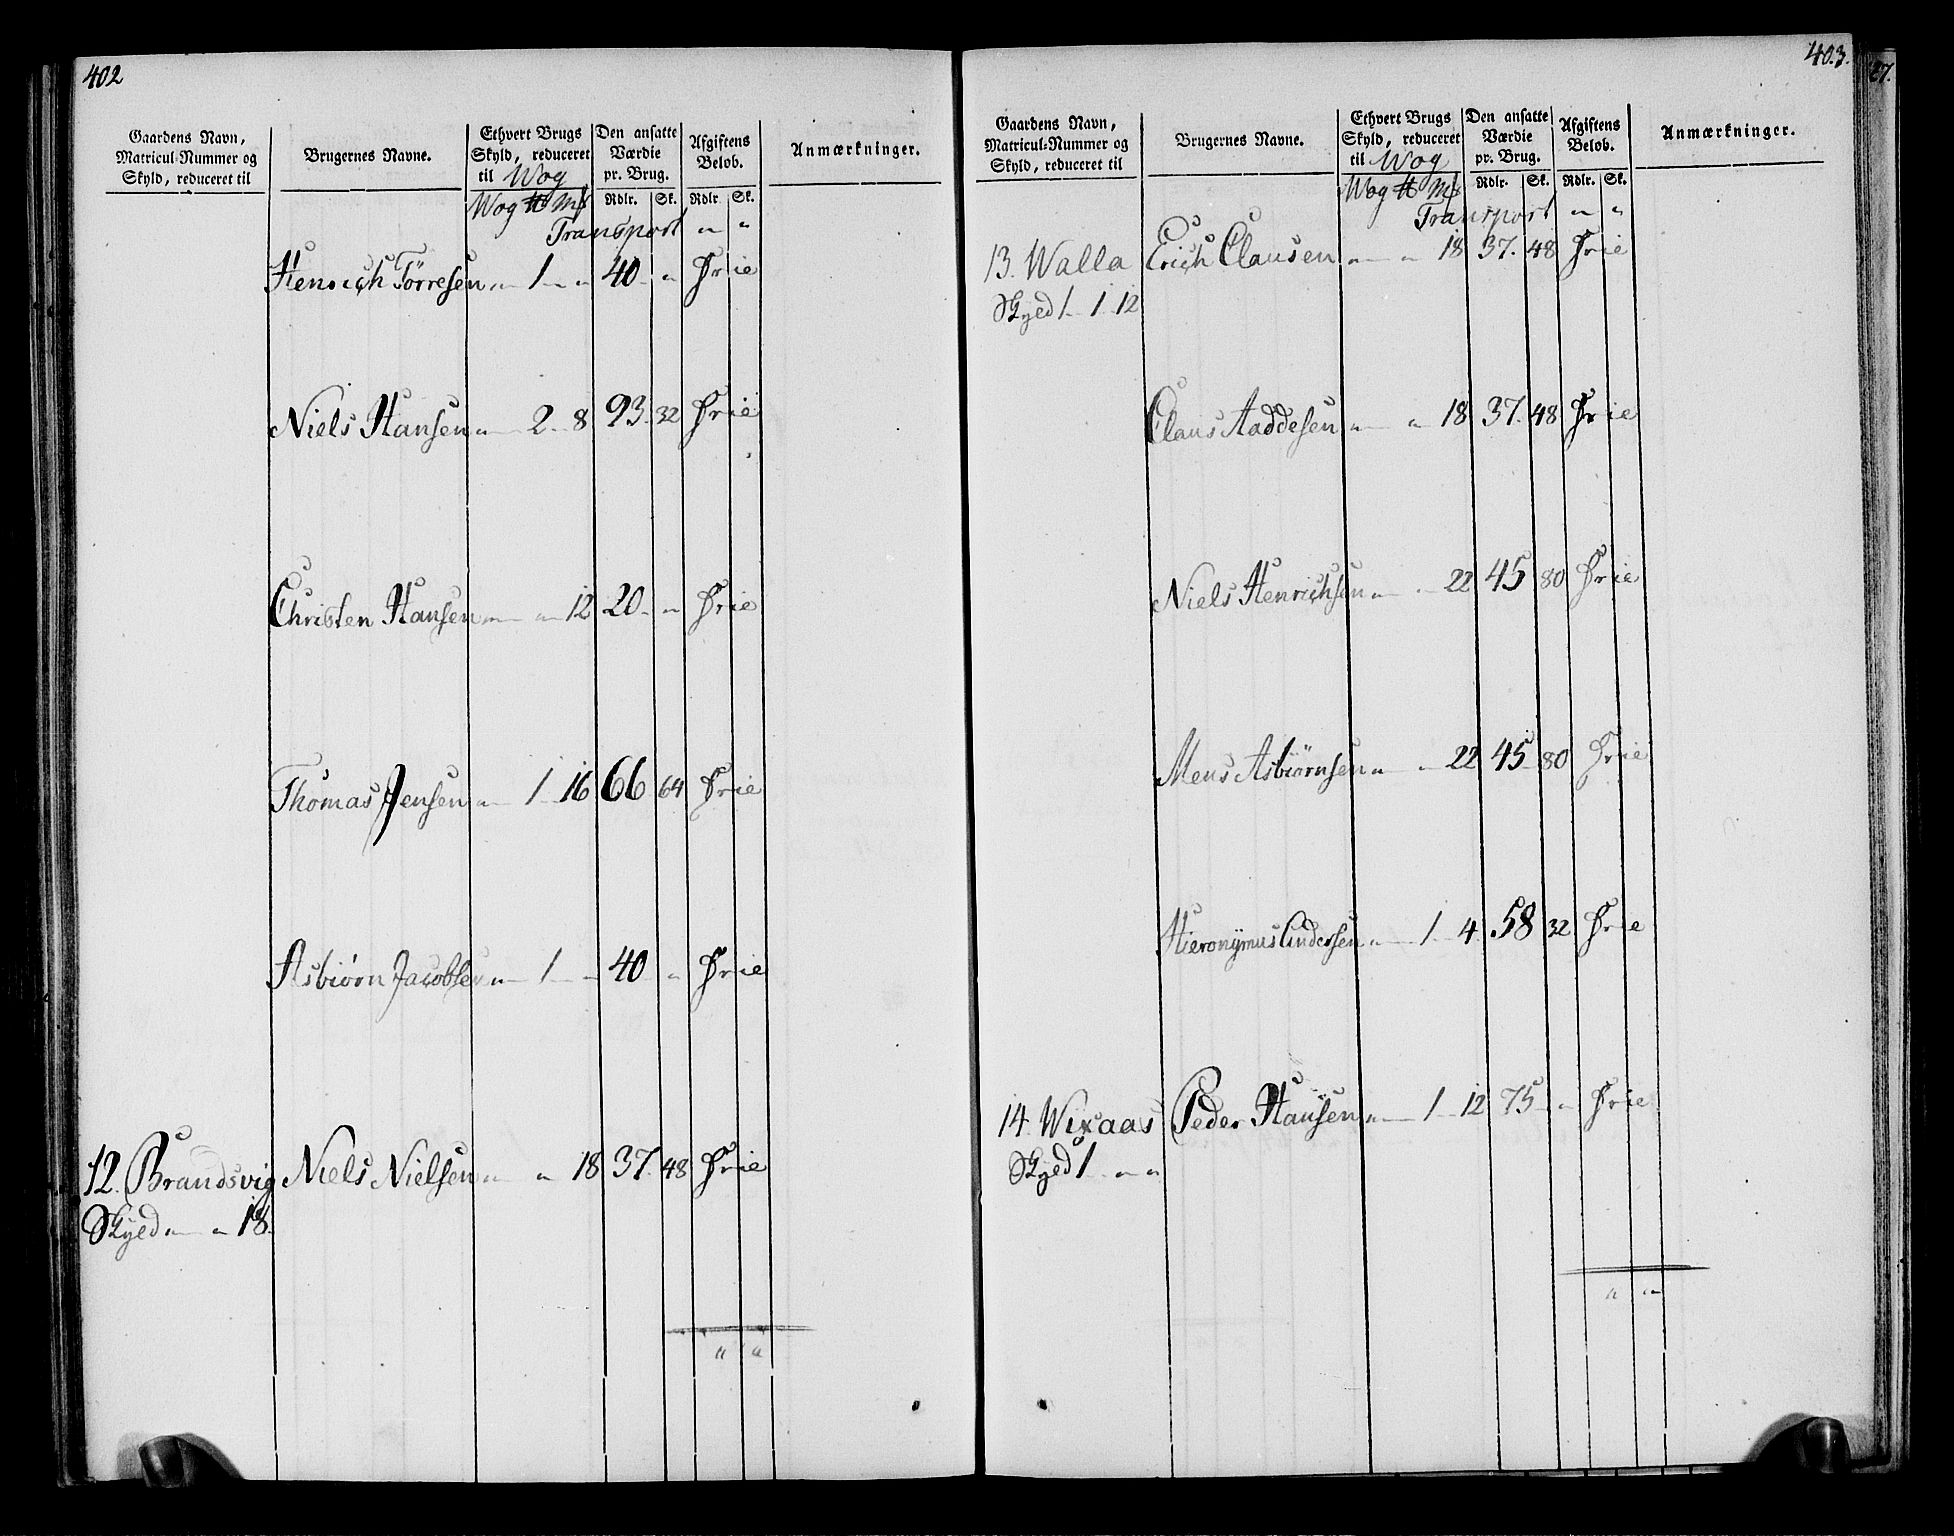 402
Gaardens Navn, Matricul-Nummer og Skyld, reduceret til
Brugernes Navne.
Ethvert Brugs Skyld, reduceret til Wog
Den ansatte Værdie pr. Brug.
Afgiftens Beløb.
Anmærkninger.
Wog ℔ Mk Rdlr. Sk. Rdlr Sk.
Transport " "
Henrich Törresen " 1 " 40 " Frie
Niels Hansen " 2 8 93. 32 Frie
Christen Hansen " " 12 20 " Frie
Thomas Jensen " 1 16 66 64 Frie
Asbiørn Jacobsen " 1 " 40 " Frie
12. Brandsvig Niels Nielsen " " 18 37. 48 Frie
Skyld " " 18.
" "
403.
27.
Gaardens Navn, Matricul-Nummer og Skyld, reduceret til
Brugernes Navne.
Ethvert Brugs Skyld, reduceret til Wog
Den ansatte Værdie pr. Brug.
Afgiftens Beløb.
Anmærkninger.
Wog ℔ Mk Rdlr. Sk. Rdlr. Sk.
Transport " "
13. Walla Erich Clausen " " 18 37. 48 Frie
Skyld 1 1 12
Claus Aaddesen " " 18 37. 48 Frie
Niels Henrichsen " " 22 45 80 Frie
Mens Asbiörnsen " " 22 45 80 Frie
Hieronÿmus Andersen " 1 4 58 32 Frie
14. Wixaas Peder Hansen " 1 12 75 " Frie
Skyld 1 " "
" "